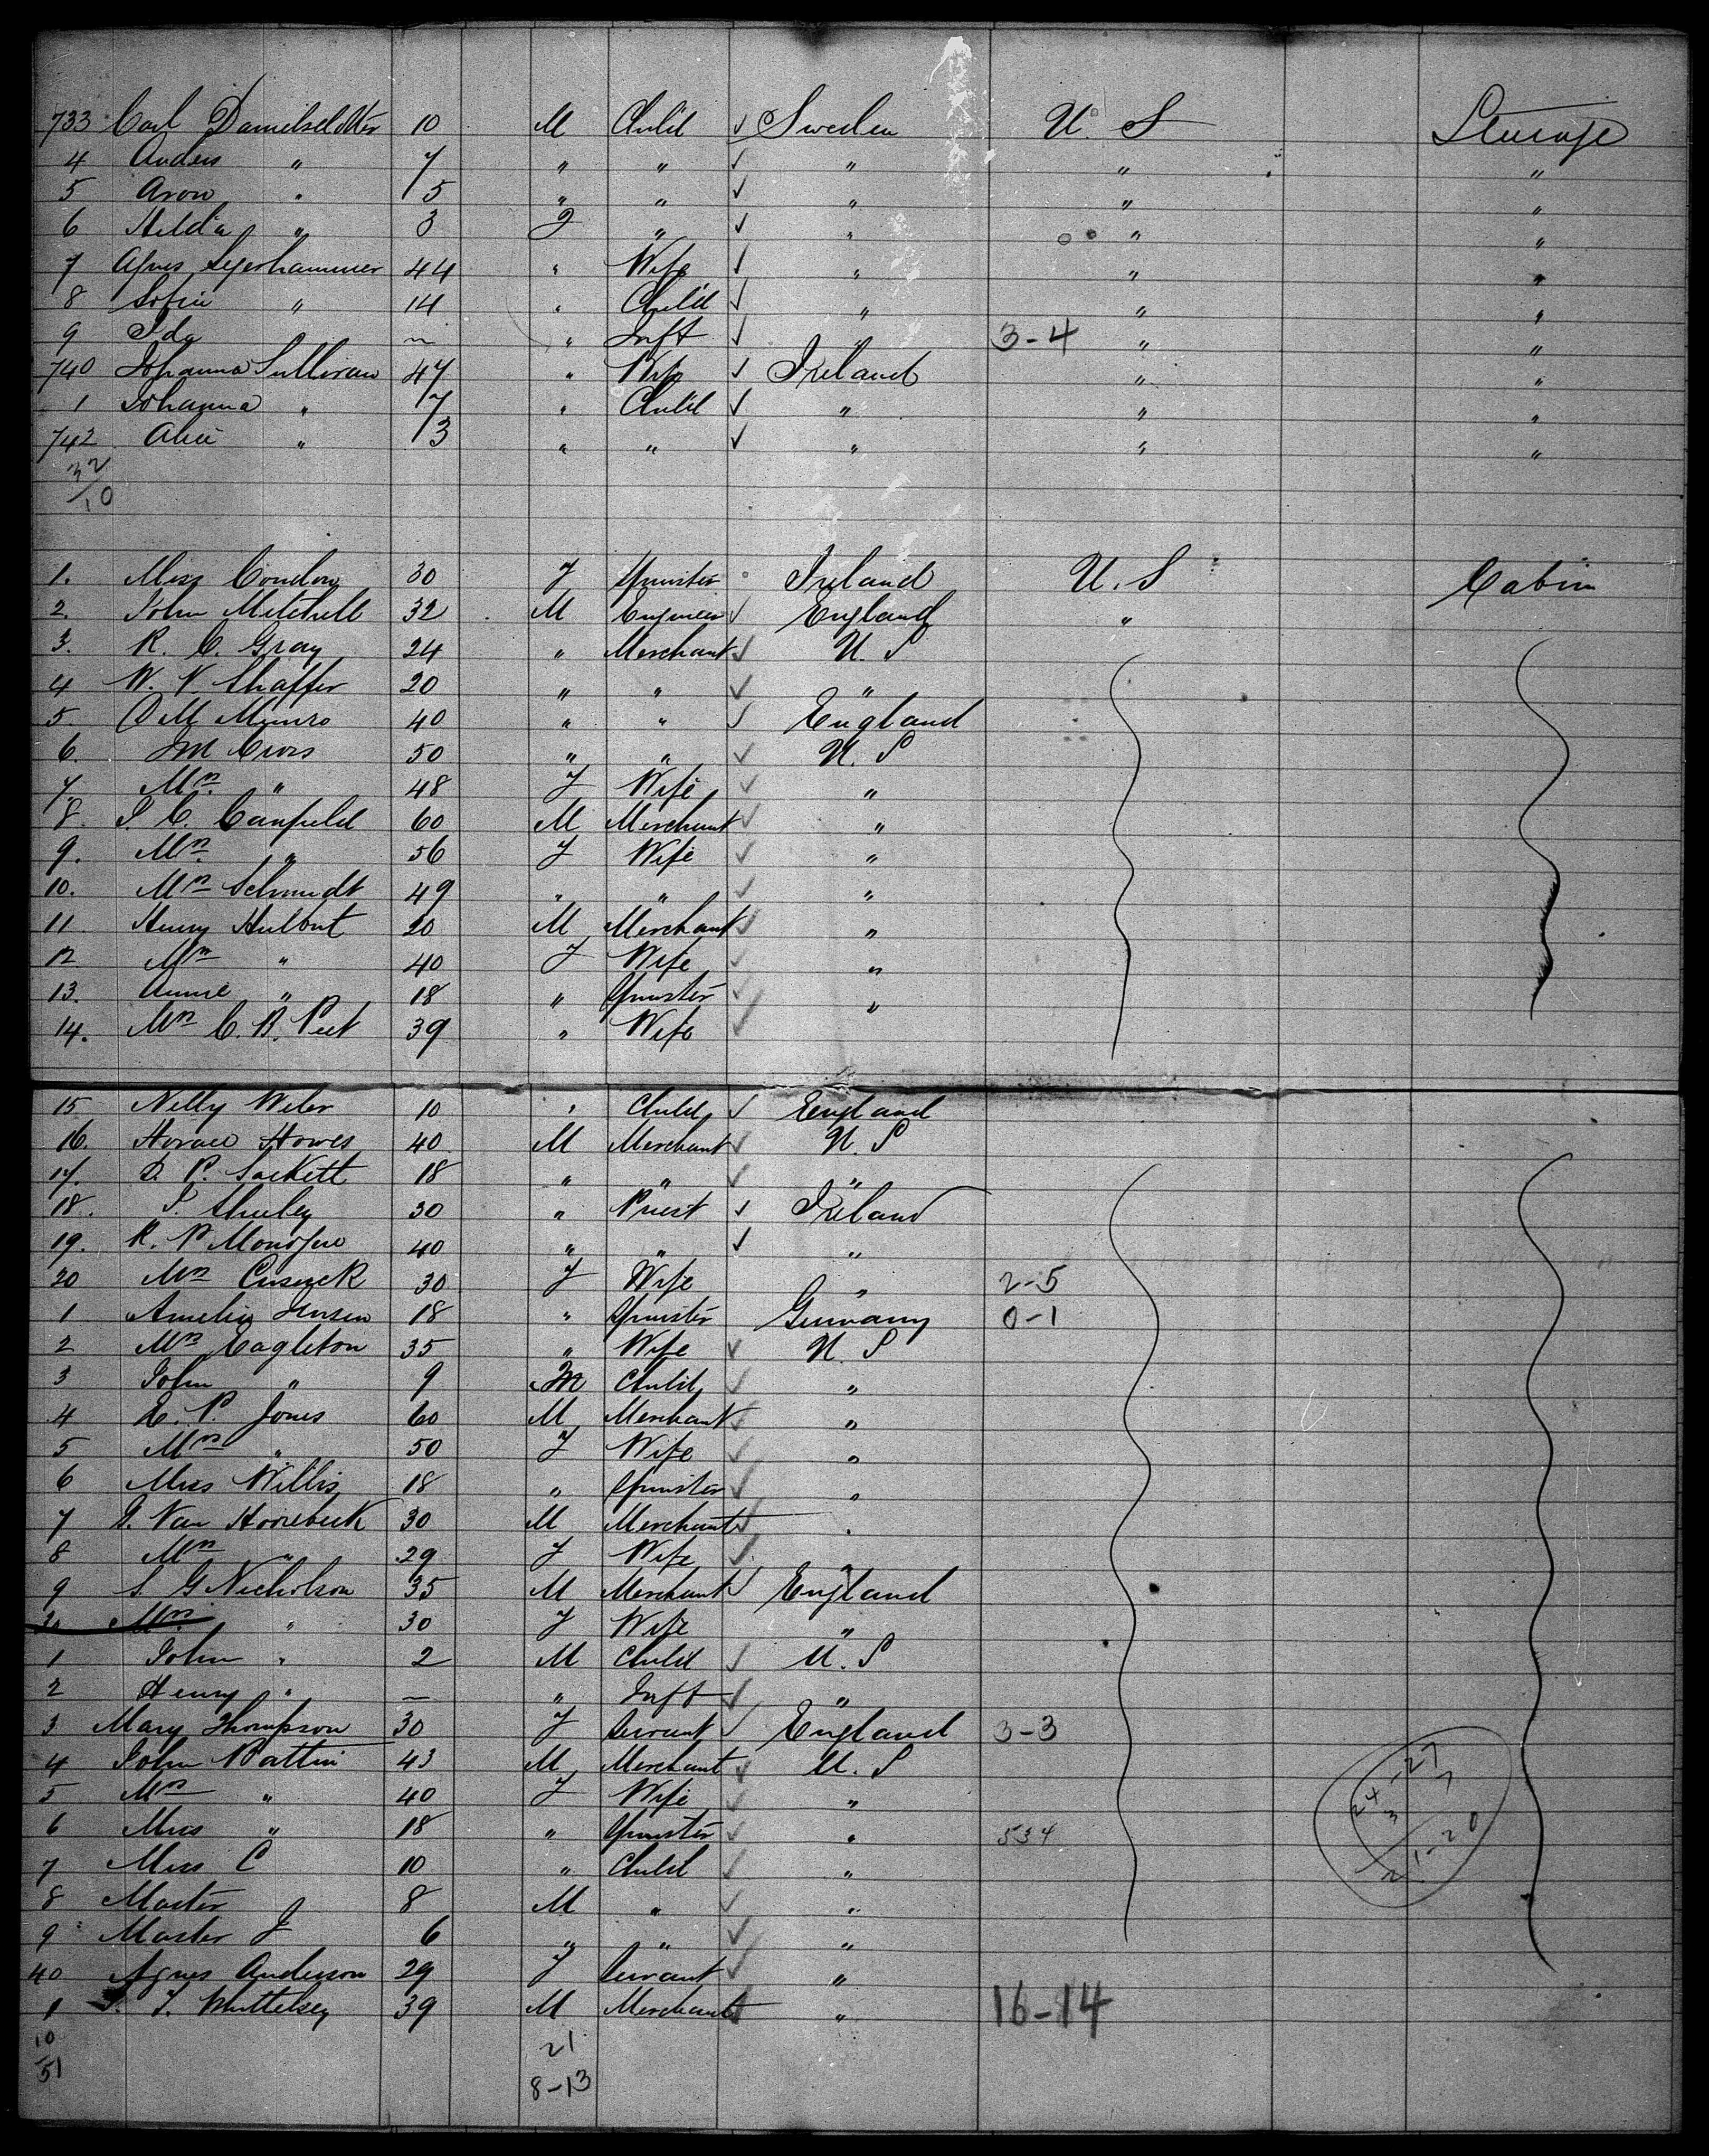 733 Carl Danielsdotter 10 M Child ✓ Sweden U. S Steerage
4 Anders " 7 " " ✓ " " "
5 Aron " 5 " " ✓ " " "
6 Hilda " 3 F " ✓ " " "
7 Agnes 44 " Wife ✓ " " "
8 Sofia " 14 " Child ✓ " " "
9 Ida — " Inft ✓ " 3-4 " "
740 Johanna Sullivan 47 " Wife ✓ Ireland " "
1 Johanna " 7 " Child ✓ " " "
742 Alice " 3 " " ✓ " " "
32
/10
1. Miss Condon 30 F Spinster Ireland U. S Cabin
2. John Mitchell 32 M Engineer ✓ England "
3. R. C. Gray 24 " Merchant ✓ U. S
4 W. V. Shaffer 20 " " ✓ "
5. D M Munro 40 " " ✓ England
6. J M Cross 50 " " ✓ U. S
7. Mrs " 48 F Wife ✓ "
8. I. C. Canfield 60 M Merchant ✓ "
9. Mrs " 56 F Wife ✓ "
10. Mrs Schmidt 49 " " ✓ "
11 Henry Hulbut 20 M Merchant ✓ "
12 Mrs " 40 F Wife ✓ "
13. Annie " 18 " Spinster ✓ "
14. Mrs C. B. Peet 39 " Wife ✓
15 Nelly Weler 10 " Child ✓ England
16. Horace Howes 40 M Merchant ✓ U. S
17. D. P. Sackett 18 " " ✓ "
18. I. Sheeley 30 " Priest ✓ Ireland
19. R. P. 40 " " ✓ "
20 Mrs Cusack 30 F Wife " 2-5
1 Amelia Jensen 18 " Spinster Germany 0-1
2 Mrs Eagleton 35 " Wife ✓ U. S
3 John " 9 M Child ✓ "
4 E. P. Jones 60 M Merchant ✓ "
5 Mrs " 50 F Wife ✓ "
6 Miss Willis 18 " Spinster ✓ "
7 G. Van Hoosebeek 30 M Merchant ✓ "
8 Mrs " 29 F Wife ✓ "
9 S. G Nicholson 35 M Merchant ✓ England
30 Mrs " 30 F Wife "
1 John " 2 M Child ✓ U. S
2 Henry " — " Inft ✓ "
3 Mary Thompson 30 F Servant ✓ England 3-3
4 John Pattin 43 M Merchant ✓ U. S
5 Mrs " 40 F Wife ✓ "
6 Miss " 18 " Spinster ✓ " 534
7 Miss C 10 " Child ✓ "
8 Master 8 M " ✓ "
9 Master J 6 " " ✓ "
40 Agnes Anderson 29 F Servant ✓ "
1 I. Whittelsey 39 M Merchant ✓ " 16-14
24-27
3 7
21-20
10 21
/51 8-13